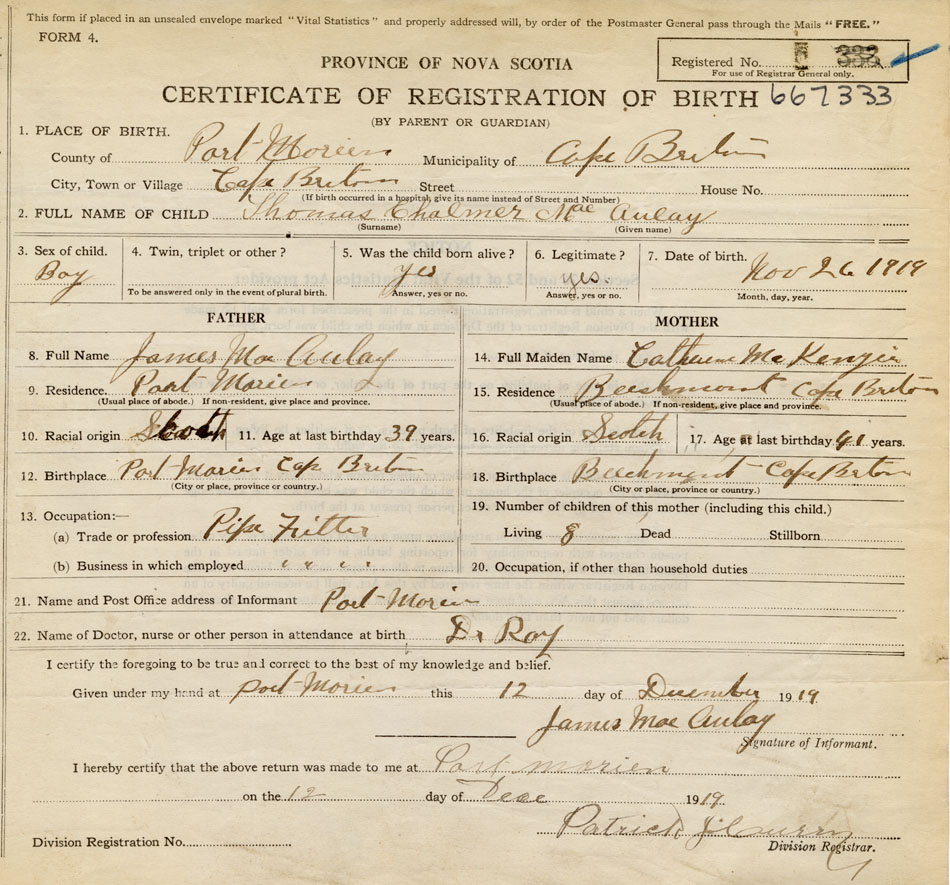 This form if placed in an unsealed envelope marked "Vital Statistics" and properly addressed will, by order of the Postmaster General pass through the Mails "FREE."
FORM 4.
Registered No.
For use of Registrar General only.
PROVINCE OF NOVA SCOTIA
CERTIFICATE OF REGISTRATION OF BIRTH 667333
(BY PARENT OR GUARDIAN)
1. PLACE OF BIRTH.
County of Port Morien Municipality of Cape Breton
City, Town or Village Cape Breton Street House No.
(If birth occurred in a hospital, give its name instead of Street and Number)
2. FULL NAME OF CHILD Thomas Chalmer Mac Aulay
(Surname) (Given name)
3. Sex of child. 4. Twin, triplet or other? 5. Was the child born alive? 6. Legitimate? 7. Date of birth.
Boy yes yes. Nov 26 1919
To be answered only in the event of plural birth. Answer, yes or no. Answer, yes or no. Month, day, year.
FATHER MOTHER
8. Full Name James Mac Aulay 14. Full Maiden Name Catherine McKenzie
9. Residence. Port Morien 15. Residence Beechmont Cape Breton
(Usual place of abode.) If non-resident, give place and province. (Usual place of abode.) If non-resident, give place and province.
10. Racial origin 11. Age at last birthday 39 years. 16. Racial origin Scotch 17. Age at last birthday 41 years.
12. Birthplace Port Morien Cape Breton 18. Birthplace Beechmont Cape Breton
(City or place, province or country.) (City or place, province or country.)
13. Occupation:— 19. Number of children of this mother (including this child.)
(a) Trade or profession Pipe Fitter Living 8 Dead Stillborn
(b) Business in which employed " " " " 20. Occupation, if other than household duties
21. Name and Post Office address of Informant Port Morien
22. Name of Doctor, nurse or other person in attendance at birth Dr Roy
I certify the foregoing to be true and correct to the best of my knowledge and belief.
Given under my hand at Port Morien this 12 day of December 1919
James Mac Aulay
Signature of Informant.
I hereby certify that the above return was made to me at Port Morien
on the 12 day of Dece 1919.
Patrick
Division Registration No. Division Registrar.